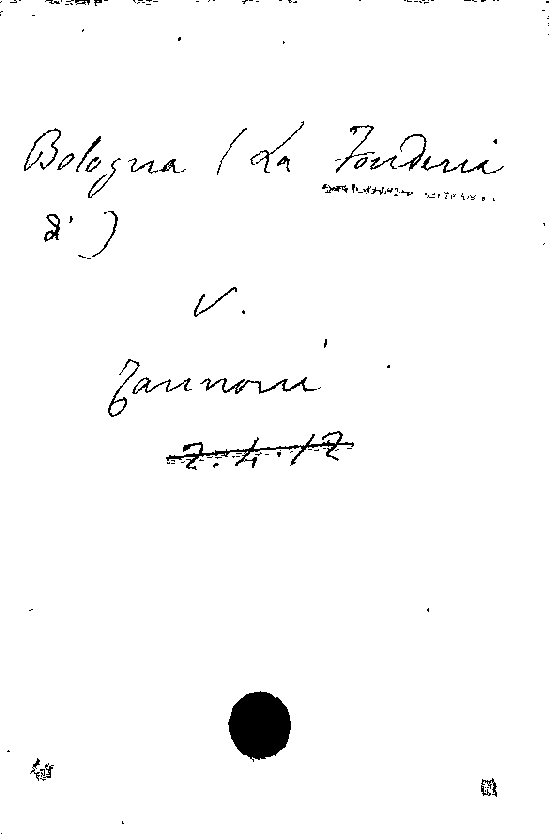 Bologna (La Fonderia
di)
V.
Zannoni
7.4.17